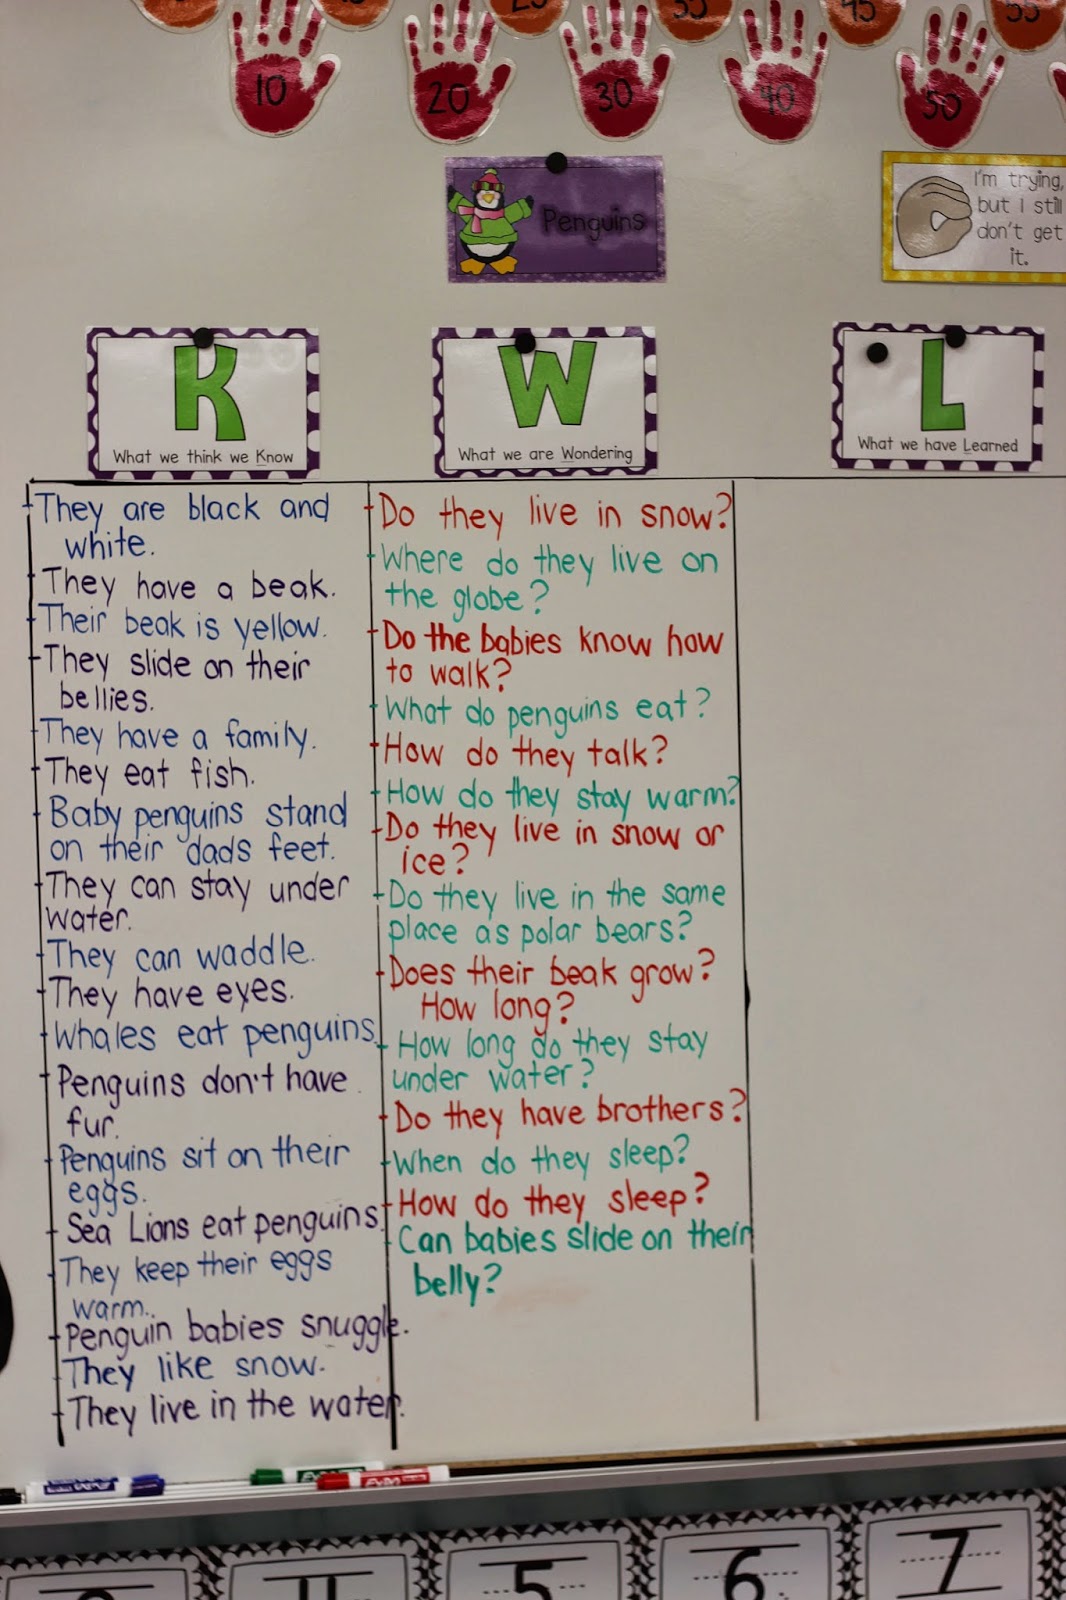 25
35
45
55
10
20
30
40
50
Penguins
I'm trying,
but I still
don't get
it.
K
What we think we Know
W
What we are Wondering
L
What we have Learned
They are black and
white.
They have a beak.
Their beak is yellow.
They slide on their
bellies.
They have a family.
They eat fish.
Baby penguins stand
on their dads feet.
They can stay under
water.
They can waddle.
They have eyes.
Whales eat penguins.
Penguins don't have
fur.
Penguins sit on their
eggs.
Sea Lions eat penguins.
They keep their eggs
warm.
Penguin babies snuggle.
They like snow.
They live in the water.
Do they live in snow?
Where do they live on
the globe?
Do the babies know how
to walk?
What do penguins eat?
How do they talk?
How do they stay warm?
Do they live in snow or
ice?
Do they live in the same
place as polar bears?
Does their beak grow?
How long?
How long do they stay
under water?
Do they have brothers?
When do they sleep?
How do they sleep?
Can babies slide on their
belly?
EXPO
5
6
7